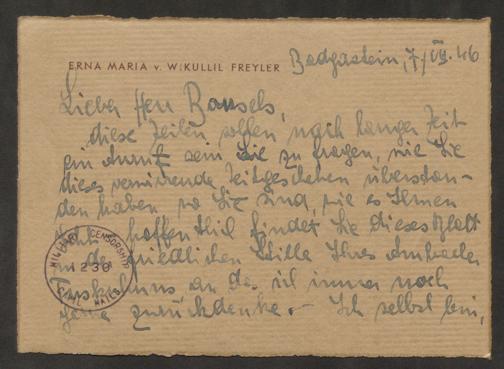 ERNA MARIA v. W:KULLIL FREYLER
Badgastein, 7/VII.46
Lieber Herr Bonsels,
diese Zeilen sollen, nach langer Zeit
ein Anruf sein Sie zu fragen, wie Sie
dieses verwirrende Zeitgeschehen überstan-
den haben wo Sie sind, wie es Ihnen
hoffentlich findet Sie dieses Blatt
in der friedlichen Stille Ihres Ambacher
an das ich immer noch
gerne zurückdenke. – Ich selbst bin,
MILITARY CENSORSHIP
1230
CIVIL MAILS